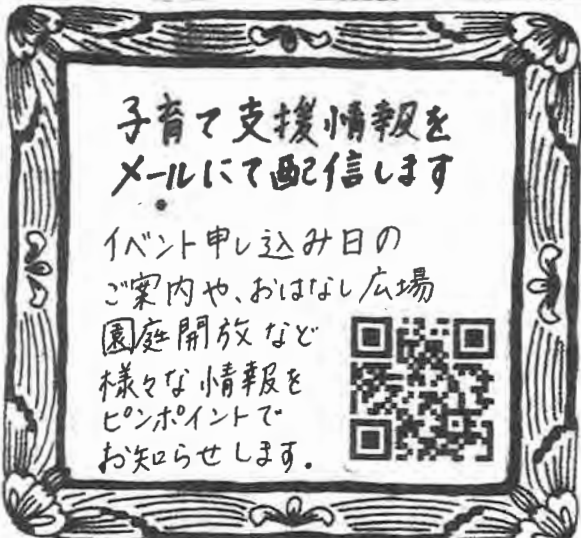 子育て支援情報を
メールにて配信します
イベント申し込み日の
ご案内や、おはなし広場
園庭開放など
様々な情報を
ピンポイントで
お知らせします.